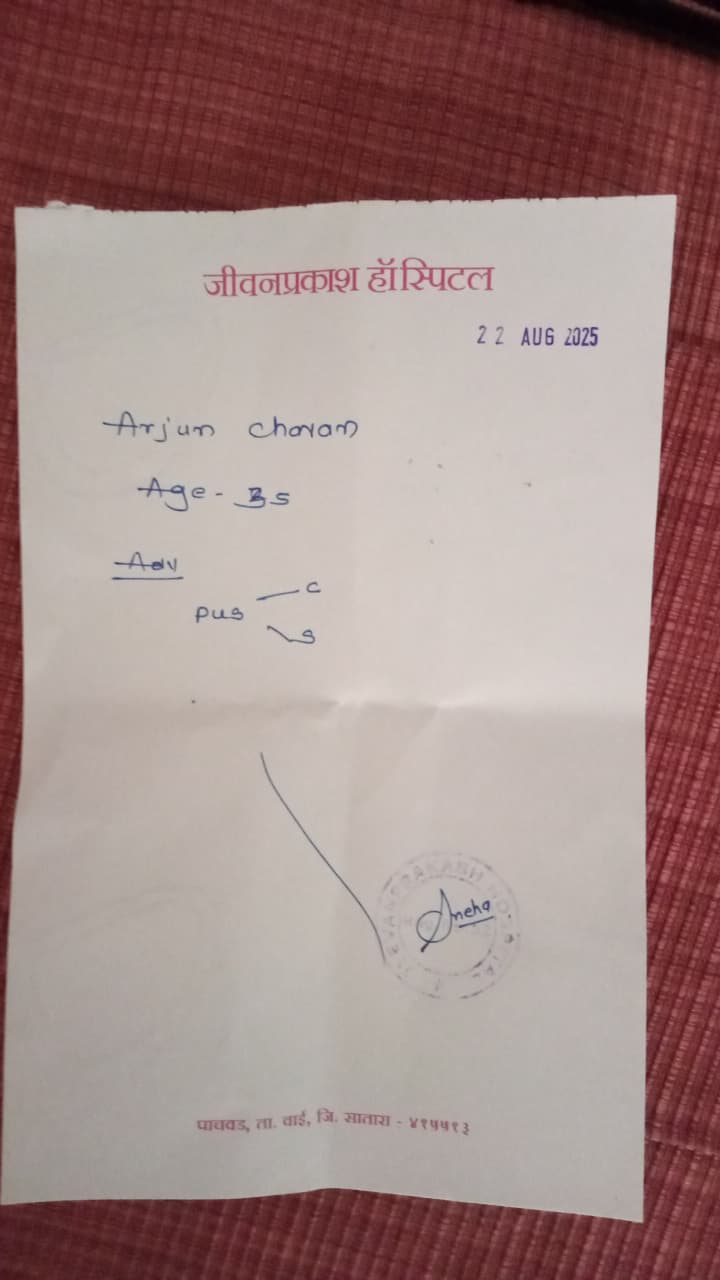 जीवनप्रकाश हॉस्पिटल
22 AUG 2025
Arjun Chavan
Age - 35
Adv
Pus — C
S
Sneha
पाचवड, ता. वाई, जि. सातारा - ४१५५१३